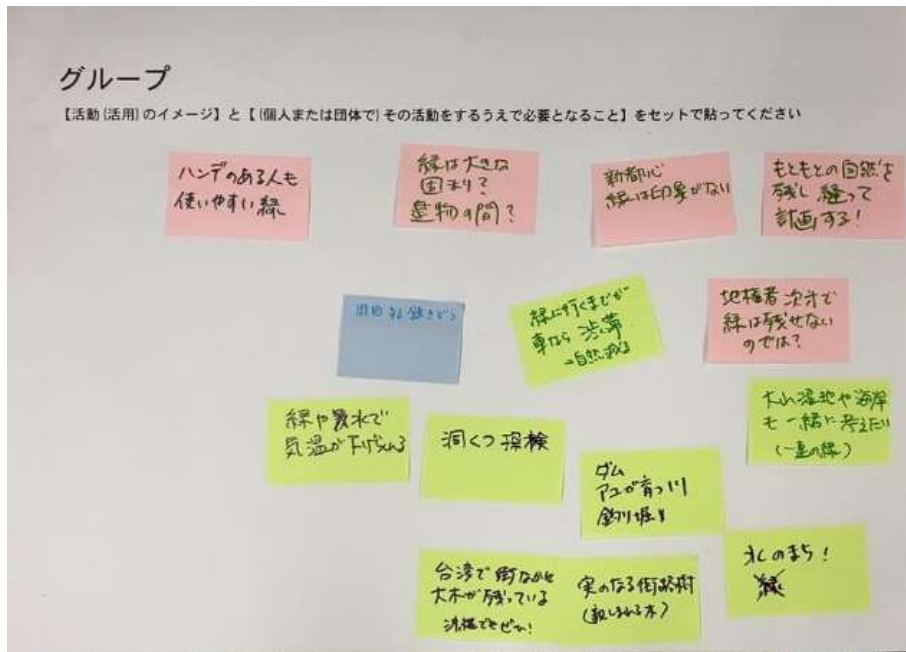 グループ
【活動(活用)のイメージ】と【(個人または団体で)その活動をするうえで必要となること】をセットで貼ってください
ハンデのある人も
使いやすい緑
緑は大きな
固まり?
建物の間?
新都心
緑は印象がない
もともとの自然を
残し、縫って
計画する!
緑に行くまでが
車なら渋滞
→自然減る
地権者次才で
緑は残せない
のでは?
緑や最水で
気温が下げられる
洞くつ探検
大山湿地や海岸
も一緒に考えたい
(一連の緑)
ダム
アユが育つ川
釣り堀
台湾で街なかに
大木が残っている
沖縄でもぜひ!
実のなる街路樹
(親しまれる木)
水のまち!
緑